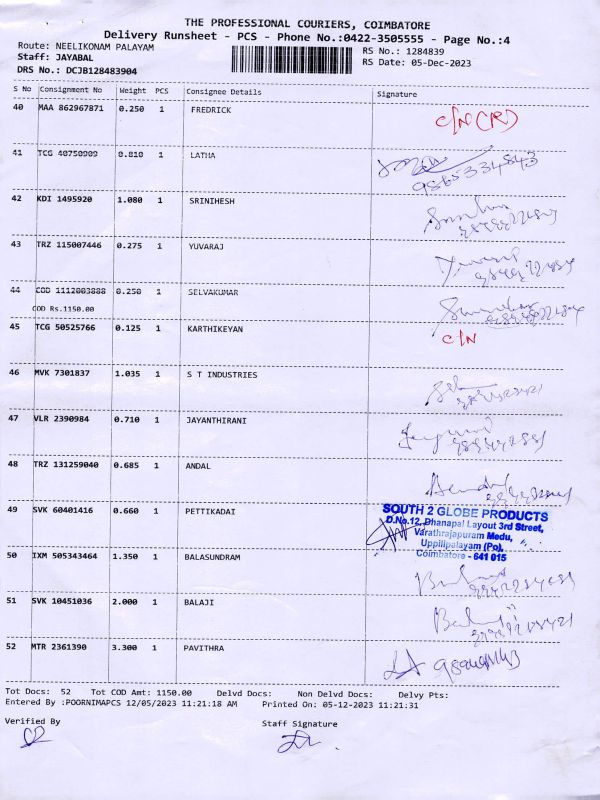 THE PROFESSIONAL COURIERS, COIMBATORE
Delivery Runsheet - PCS - Phone No.:0422-3505555 - Page No.:4
Route: NEELIKONAM PALAYAM
RS No.: 1284839
Staff: JAYABAL
RS Date: 05-Dec-2023
DRS No.: DCJB128483904
S No Consignment No Weight PCS Consignee Details Signature
40 MAA 862967871 0.250 1 FREDRICK C/N (R)
41 TCG 40750909 0.810 1 LATHA
42 KDI 1495920 1.080 1 SRINIHESH
43 TRZ 115007446 0.275 1 YUVARAJ
44 COD 1112003888 0.250 1 SELVAKUMAR
COD Rs.1150.00
45 TCG 50525766 0.125 1 KARTHIKEYAN C/N
46 MVK 7301837 1.035 1 S T INDUSTRIES
47 VLR 2390984 0.710 1 JAYANTHIRANI
48 TRZ 131259040 0.685 1 ANDAL
49 SVK 60401416 0.660 1 PETTIKADAI
SOUTH 2 GLOBE PRODUCTS
D.No.12, Dhanapal Layout 3rd Street,
Varathrajapuram Medu,
Uppilipalayam (Po),
Coimbatore - 641 015
50 IXM 505343464 1.350 1 BALASUNDRAM
51 SVK 10451036 2.000 1 BALAJI
52 MTR 2361390 3.300 1 PAVITHRA
Tot Docs: 52 Tot COD Amt: 1150.00 Delvd Docs: Non Delvd Docs: Delvy Pts:
Entered By :POORNIMAPCS 12/05/2023 11:21:18 AM Printed On: 05-12-2023 11:21:31
Verified By Staff Signature